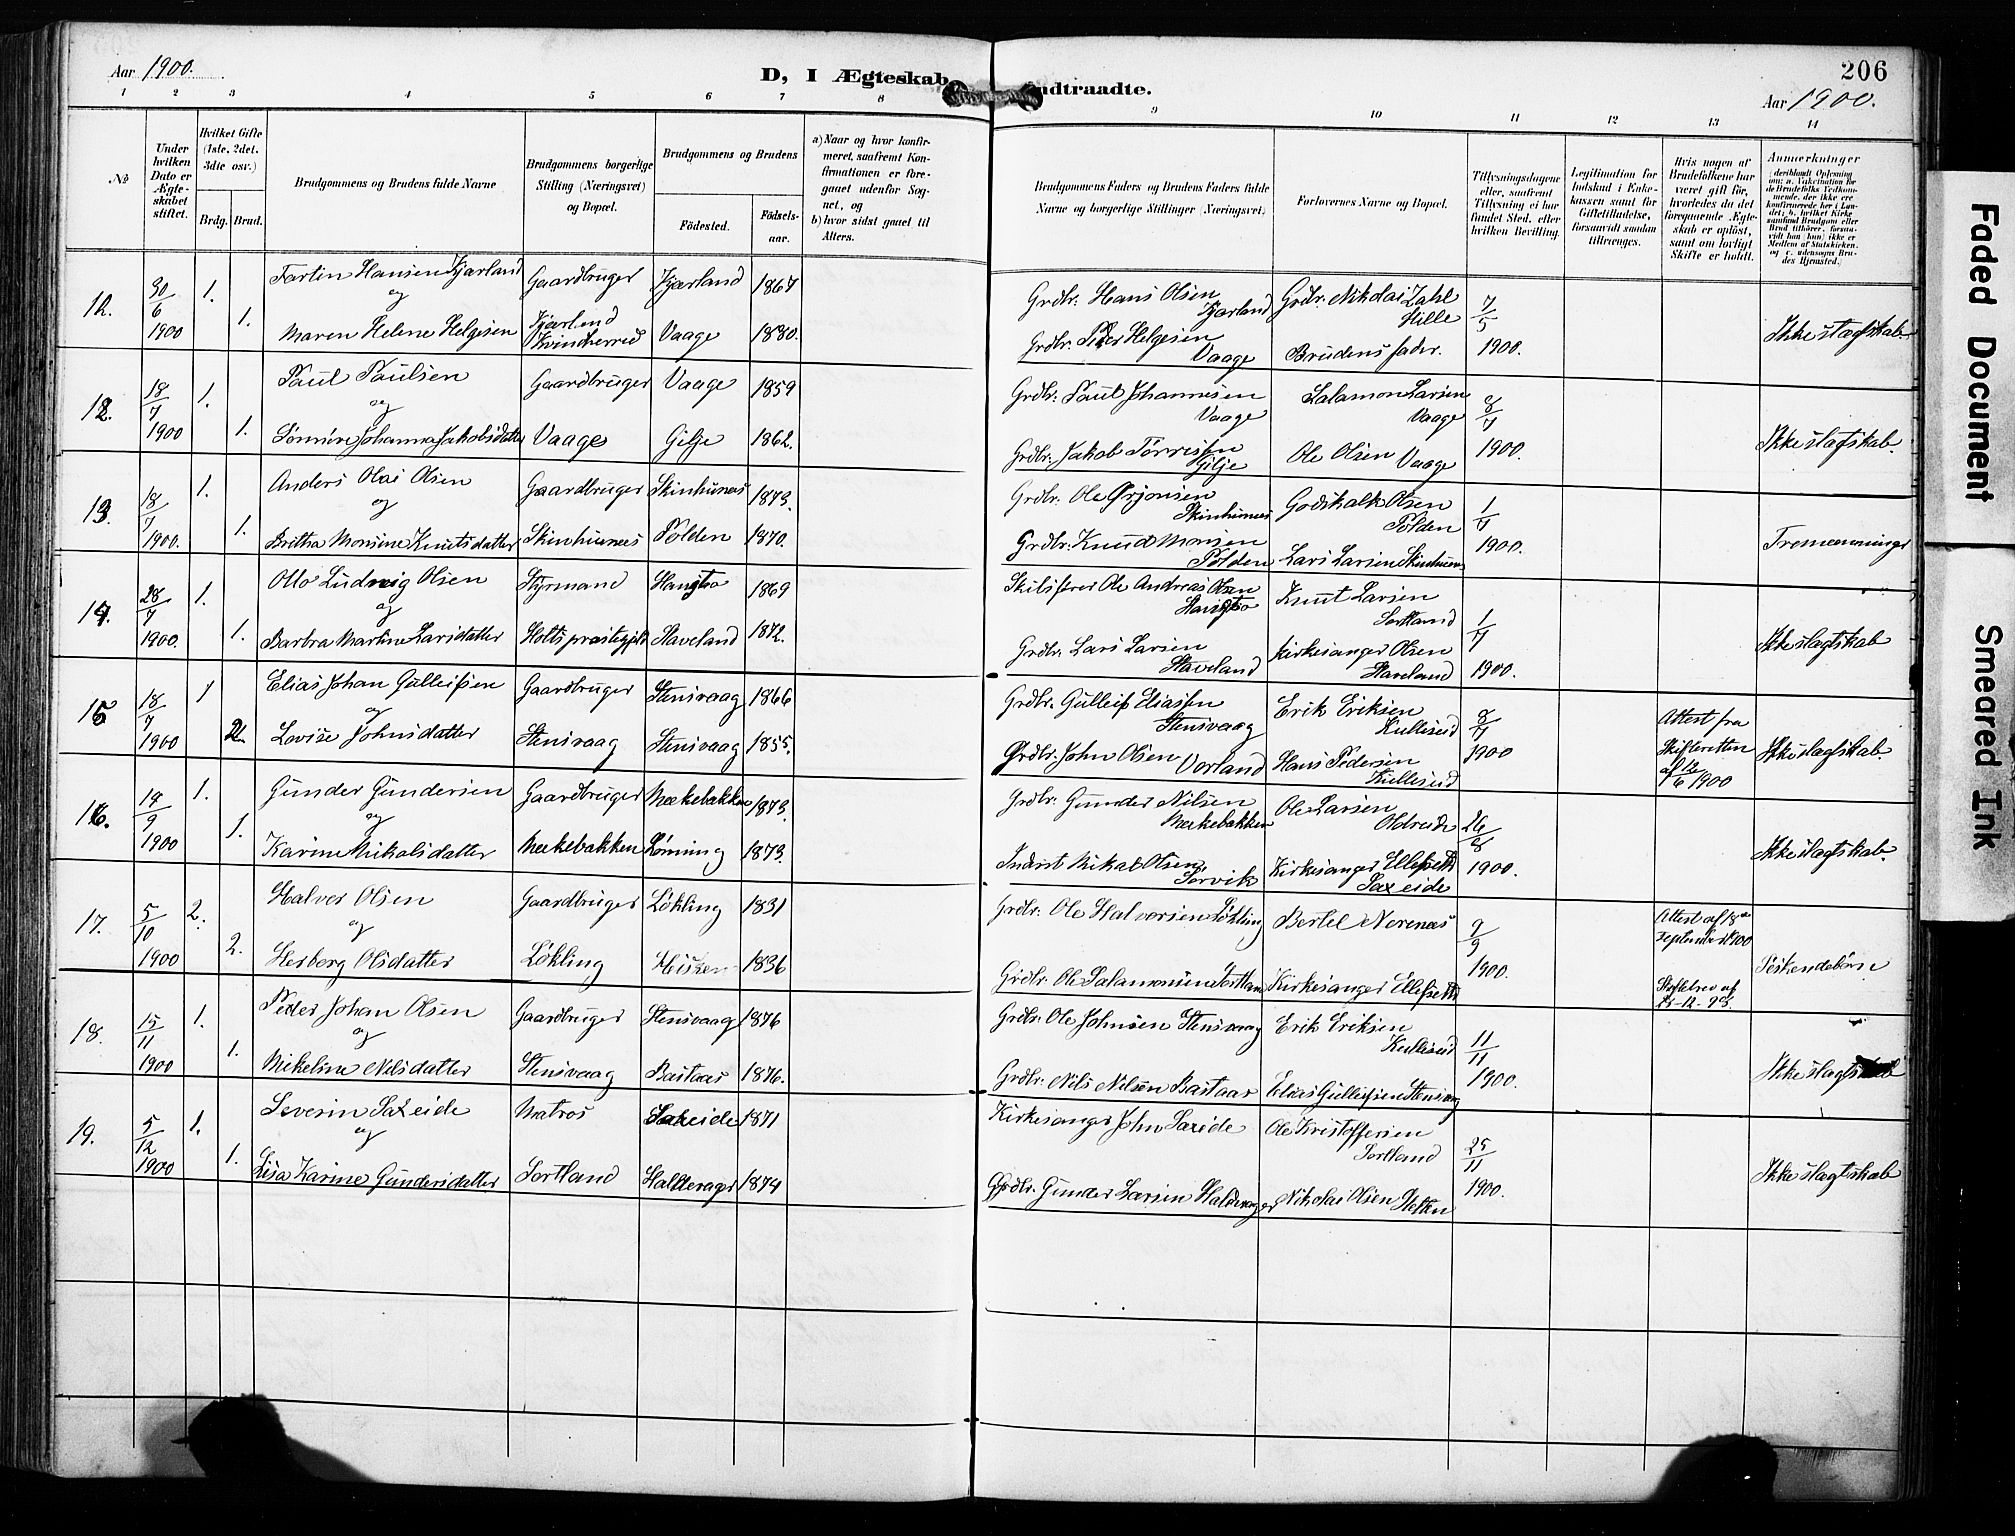 Aar 1900.
D, I Ægteskab
ndtraadte.
206
Aar 1900.
1 2 3 4 5 6 7 8 9 10 11 12 13 14
No
Under hvilken Dato er Ægteskabet stiftet.
Hvilket Gifte (1ste, 2det, 3die osv.)
Brdg. Brud.
Brudgommens og Brudens fulde Navne
Brudgommens borgerlige Stilling (Næringsvei) og Bopæl.
Brudgommens og Brudens
Fødested.
Fødselsaar.
a) Naar og hvor konfirmeret, saafremt Konfirmationen er foregaaet udenfor Sognet, og
b) hvor sidst gaaet til Alters.
Brudgommens Faders og Brudens Faders fulde Navne og borgerlige Stillinger (Næringsvei)
Forlovernes Navne og Bopæl.
Tillysningsdagene eller, saafremt Tillysning ei har fundet Sted, efter hvilken Bevilling.
Legitimation for Indskud i Enkekassen samt for Giftetilladelse, forsaavidt saadan tiltrænges.
Hvis nogen af Brudefolkene har været gift før, hvorledes da det foregaaende Ægteskab er opløst, samt om lovligt Skifte er holdt.
Anmerkninger
12. 30/6 1900 1. 1.
Tartin Hansen Kjærland
og
Maren Helene Helgesen
Gaardbruger
Kjærland
Kvindherred
Kjærland 1867
Vaage 1880.
Grdbr. Hans Olsen Kjærland
Grdbr. Peder Helgesen Vaage
Grdbr. Nikolai Zahl Hille
Brudens fader.
7/5 1900.
Ikke slægtskab.
12. 18/7 1900 1. 1.
Paul Paulsen
og
Johanna Jakobsdatter
Gaardbruger
Vaage
Vaage 1859
Gilje 1862.
Grdbr. Paul Johannesen Vaage
Grdbr. Jakob Tørrisen Gilje
Salamon Larsen Vaage
Ole Olsen Vaage
8/7 1900.
Ikke slagtskab.
13. 18/7 1900. 1. 1.
Anders Olai Olsen
og
Britha Monsine Knutsdatter
Gaardbruger
Skinhunæs
Skinhunæs 1873.
Tolden 1870.
Grdbr. Ole Ørjansen Skinhunæs
Grdbr. Knud Monsen Tolden
Godskalk Olsen Tolden
Lars Larsen Skinhunæs
1/7 1900.
Tremenninger
14. 28/7 1900. 1. 1.
Otto Ludvig Olsen
og
Barbra Martine Larsdatter
Styrmand
Holts prestegjeld
1869
Staveland 1872.
Skibsfører Ole Andreas Olsen
Grdbr. Lars Larsen Staveland
Knut Larsen Sortland
Kirkesanger Olsen Staveland
1/7 1900.
Ikke slagtskab
15 18/7 1900 1 2.
Elias Johan Gulleifsen
og
Lovise Johnsdatter
Gaardbruger
Stensvaag
Stensvaag 1866
Stensvaag 1855.
Grdbr. Gulleif Eliassen Stensvaag
Grdbr. John Olsen Vorland
Erik Eriksen Kulleseid
Hans Pedersen Kulleseid
8/7 1900
Attest fra Skifteretten af 12/6 1900
Ikke slagtskab.
16. 19/9 1900 1. 1.
Gunder Gundersen
og
Karine Mikalsdatter
Gaardbruger
Mækebakken
Mækebakken 1873.
Lønning 1873.
Grdbr. Gunder Nilsen Mækebakken
Inderst Mikal Olsen Torvik
Ole Larsen Oldreide
Kirkesanger Ellefseth Saxeide
26/8 1900.
Ikke slagtskab.
17. 5/10 1900 2. 2.
Halvor Olsen
og
Herborg Olsdatter
Gaardbruger
Løkling
Løkling 1831
1836
Grdbr. Ole Halvorsen Løkling
Grdbr. Ole Salamonsen Sortland
Bertel Nerenæs
Kirkesanger Ellefseth
9/9 1900.
Attest af 18de September 1900
Skiftebrev af
Søskendebørn
18. 15/11 1900 1. 1.
Peder Johan Olsen
og
Mikeline Nilsdatter
Gaardbruger
Stensvaag
Stensvaag 1876
Bastaas 1876.
Grdbr. Ole Johnsen Stensvaag
Grdbr. Nils Nilsen Bastaas
Erik Eriksen Kulleseid
Elias Gulleifsen Stensvaag
11/11 1900.
Ikke slagtskab
19. 5/12 1900 1. 1.
Severin Saxeide
og
Lisa Karine Gundersdatter
Matros
Sortland
Saxeide 1871
Haldevager 1874
Kirkesanger John Saxeide
Grdbr. Gunder Larsen Haldevager
Ole Kristoffersen Sortland
Nikolai Olsen Stokken
25/11 1900.
Ikke slagtskab
Faded Document
Smeared Ink